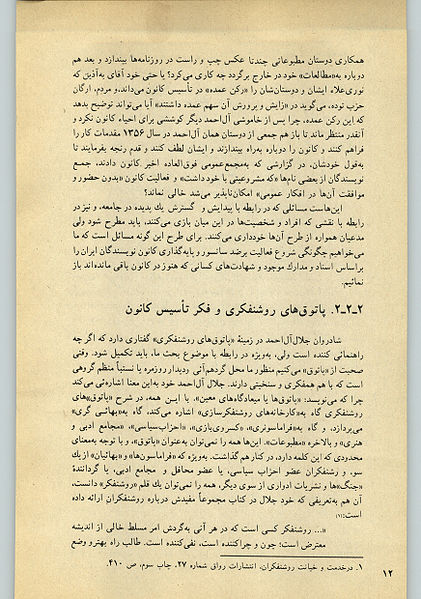 همکاری دوستان مطبوعاتی چندتا عکس چپ و راست در روزنامه‌ها بیندازد و بعد هم
دوباره به«مطالعات» خود در خارج برگردد چه کاری می‌کرد؟ یا حتی خود آقای به‌آذین که
نوری‌علاء ایشان و دوستان‌شان را «رکن عمده» در تأسیس کانون می‌داند، و مردم، ارگان
حزب توده، می‌گوید در «زایش و پرورش آن سهم عمده داشتند» آیا می‌تواند توضیح بدهد
که این رکن عمده، چرا پس از خاموشی آل‌احمد دیگر کوششی برای احیاء کانون نکرد و
آنقدر منتظر ماند تا باز هم جمعی از دوستان همان آل‌احمد در سال ۱۳۵۶ مقدمات کار را
فراهم کنند و کانون را دوباره به‌راه بیندازند و ایشان لطف کنند و قدم رنجه بفرمایند تا
به‌قول خودشان، در گزارشی که به‌مجمع‌عمومی فوق‌العاده اخیر کانون دادند، جمع
نویسندگان از بعضی نام‌ها «که مشروعیتی با خود داشت» و فعالیت کانون «بدون حضور و
موافقت آن‌ها در افکار عمومی» امکان‌ناپذیر می‌شد خالی نماند؟
این‌هاست مسائلی که در رابطه با پیدایش و گسترش یك پدیده در جامعه، و نیز در
رابطه با نقشی که افراد و شخصیت‌ها در این میان بازی می‌کنند، باید مطرح شود ولی
مدعیان همواره از طرح آن‌ها خودداری می‌کنند. برای طرح این گونه مسائل است که ما
می‌خواهیم چگونگی شروع فعالیت برضد سانسور و پایه‌گذاری کانون نویسندگان ایران را
براساس اسناد و مدارك موجود و شهادت‌های کسانی که هنوز در کانون باقی مانده‌اند باز
نمائیم.
۲ـ۲ـ۲. پاتوق‌های روشنفکری و فکر تأسیس کانون
شادروان جلال‌آل‌احمد در زمینهٔ «پاتوق‌های روشنفکری» گفتاری دارد که اگر چه
راهنمائی کننده است ولی، به‌ویژه در رابطه با موضوع بحث ما، باید تکمیل شود. وقتی
صحبت از «پاتوق» می‌کنیم منظور ما محل گردهم‌آئی ودیدار روزمره یا نسبتاً منظم گروهی
است که با هم همفکری و سنخیتی دارند. جلال آل‌احمد خود به‌این معنا اشاره‌ئی می‌کند
چرا که می‌نویسد: «پاتوق‌ها یا میعادگاه‌های معین». با این همه، در شرح «پاتوق»های
روشنفکری گاه به«کارخانه‌های روشنفکرسازی» اشاره می‌کند، گاه به«بهائی گری»
می‌پردازد، و گاه به«فراماسونری»، «کسروی‌بازی»، «احزاب‌سیاسی»، «مجامع ادبی و
هنری» و بالاخره «مطبوعات». این‌ها همه را نمی‌توان به‌عنوان «پاتوق»، و با توجه به‌معنای
محدودی که این کلمه دارد، در کنار هم گذاشت. به‌ویژه که «فراماسون‌ها» و «بهائیان» از یك
سو، و رشنفکران عضو احزاب سیاسی، یا عضو محافل و مجامع ادبی، یا گردانندهٔ
«جنگ»ها و نشریات ادواری از سوی دیگر، همه را نمی‌توان یك قلم «روشنفکر» دانست،
آن هم به‌تعریفی که خود جلال در کتاب مجموعاً مفیدش درباره روشنفکران ارائه داده
است:(۱)
«... روشنفکر کسی است که در هر آنی به‌گردش امر مسلط خالی از اندیشه
معترض است؛ چون و چراکننده است، نفی‌کننده است. طالب راه بهتر و وضع
۱. درخدمت و خیانت روشنفکران، انتشارات رواق شماره ۲۷، چاپ سوم، ص ۴۱۰.
۱۲